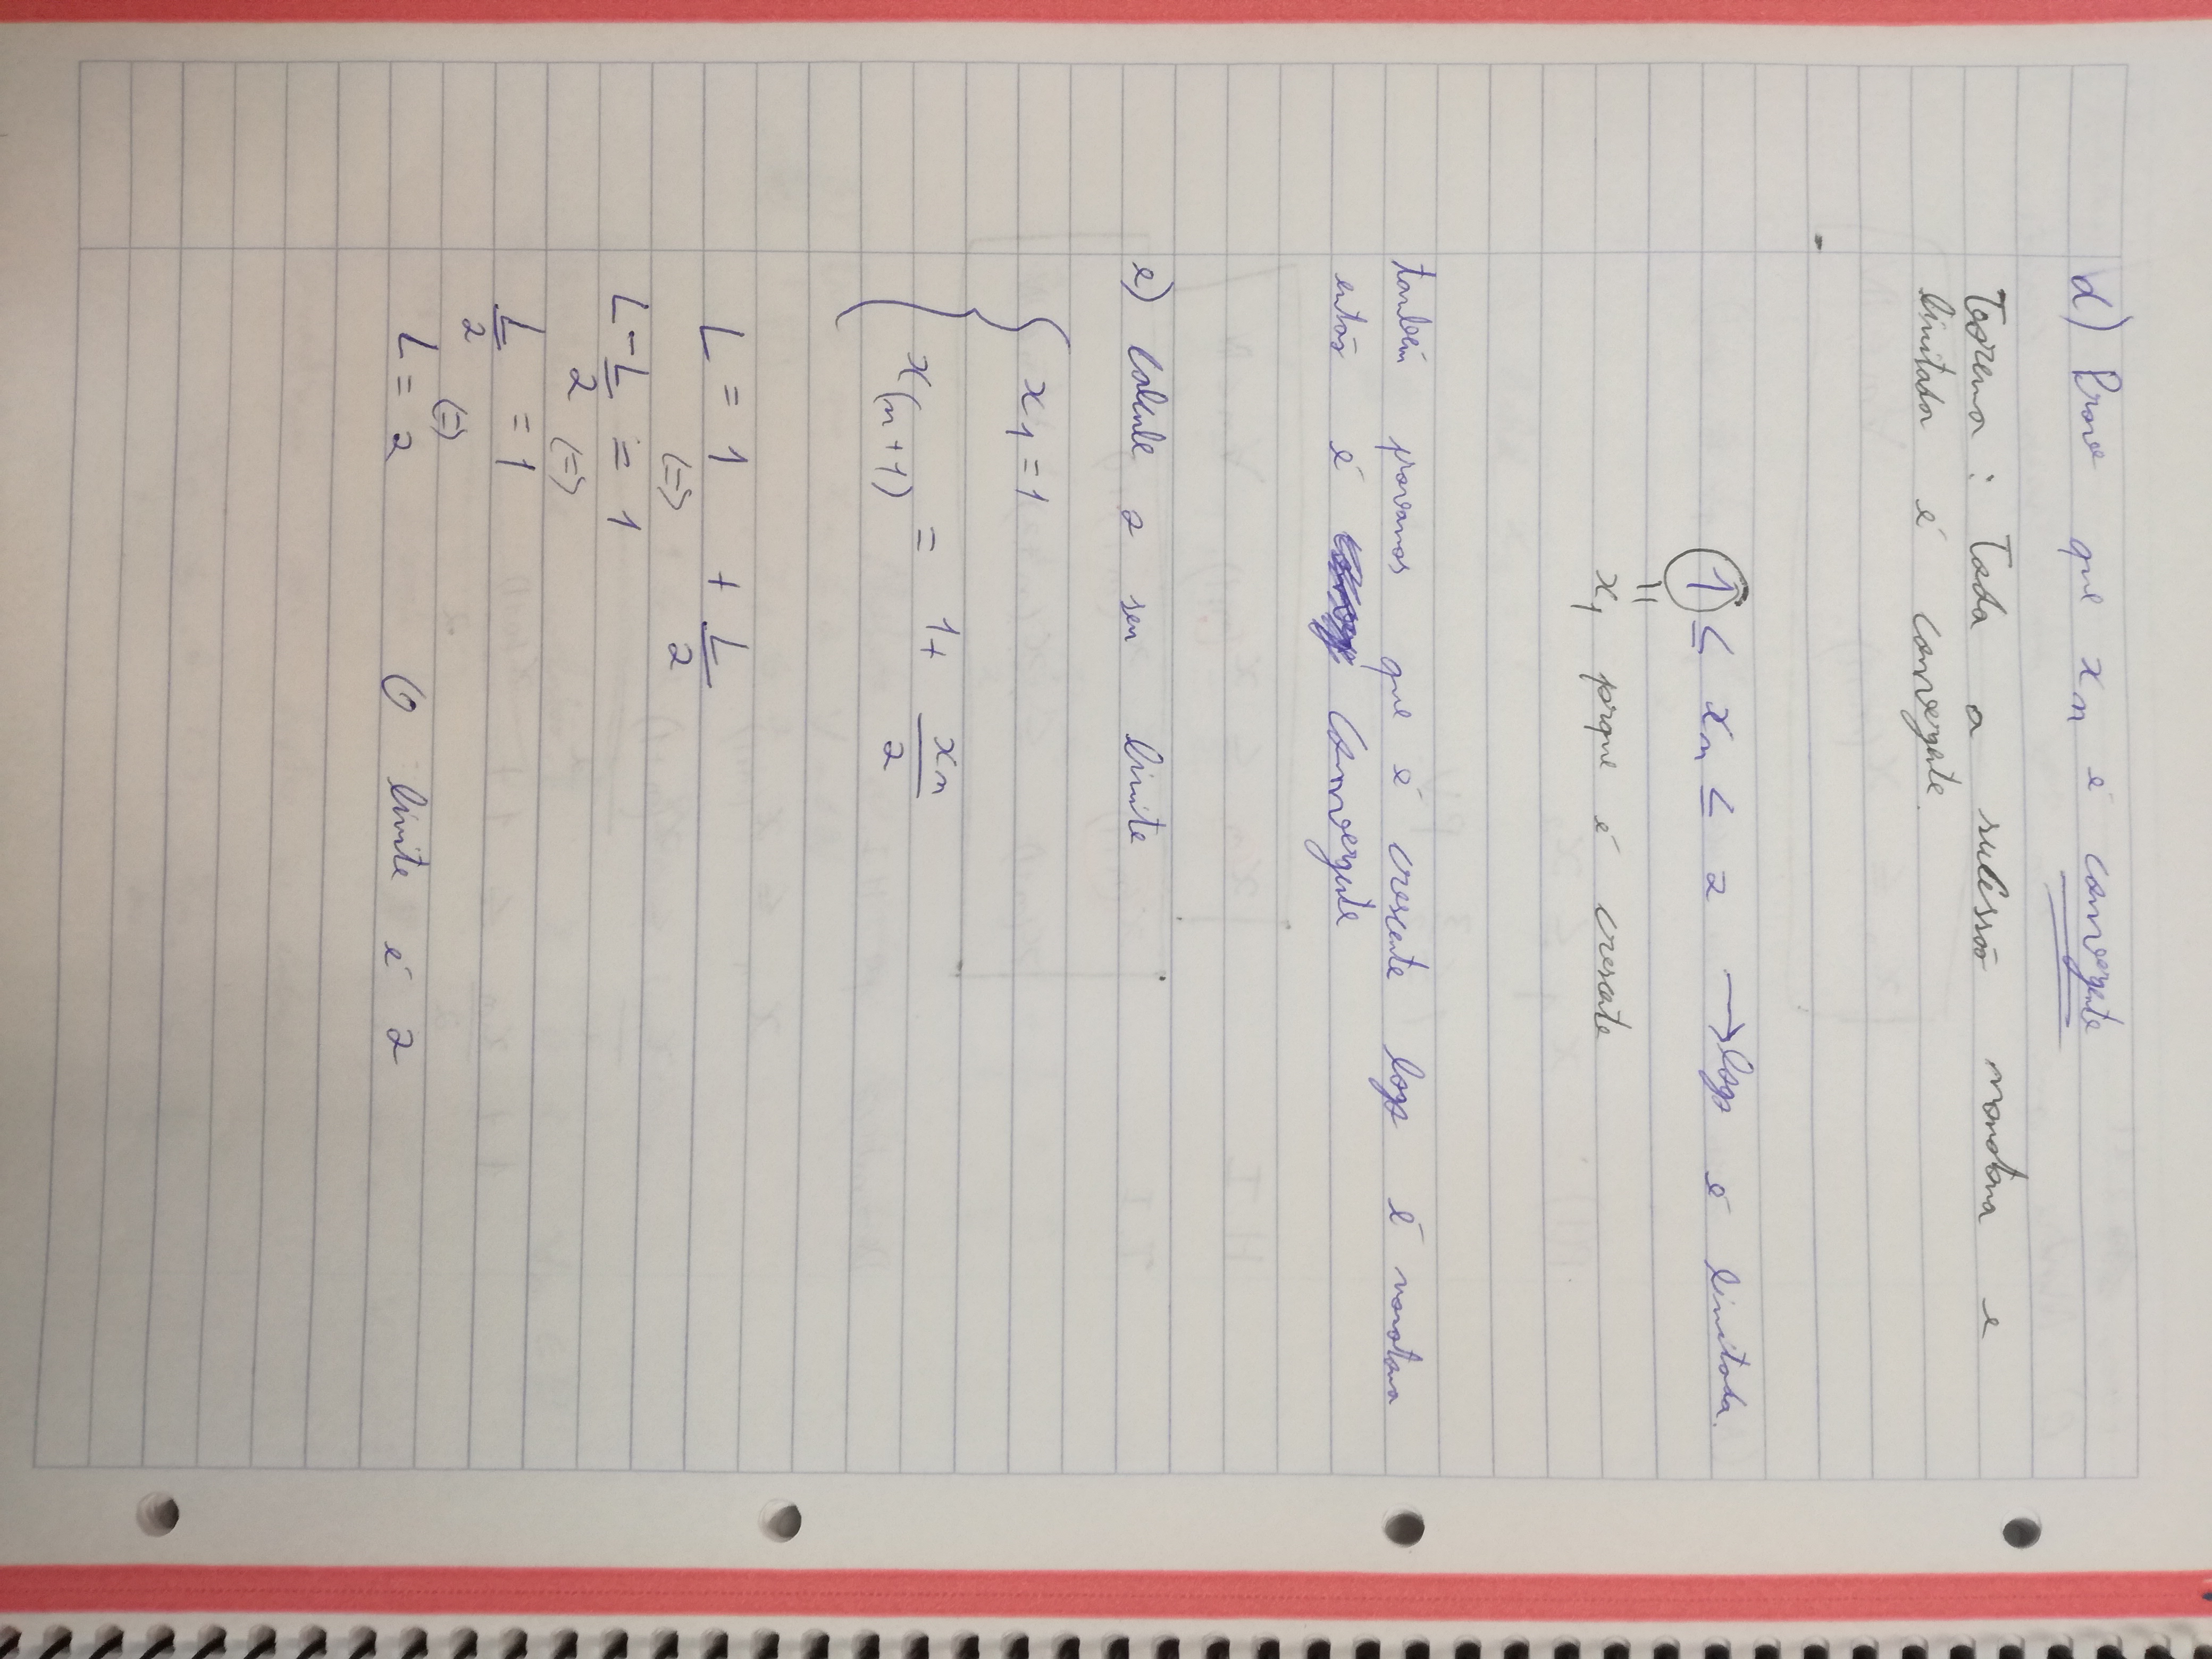 d) Prove que xn é convergente
Teorema : Toda a sucessão monotona e
limitada é convergente.
1 ≤ xn ≤ 2 → logo é limitada.
=
x1 porque é crescente
também provamos que é crescente logo é monotona
então é convergente
e) Calcule o seu limite
{ x1 = 1
x(n+1) = 1 + xn/2
L = 1 + L/2
(=)
L - L/2 = 1
(=)
L/2 = 1
(=)
L = 2 O limite é 2